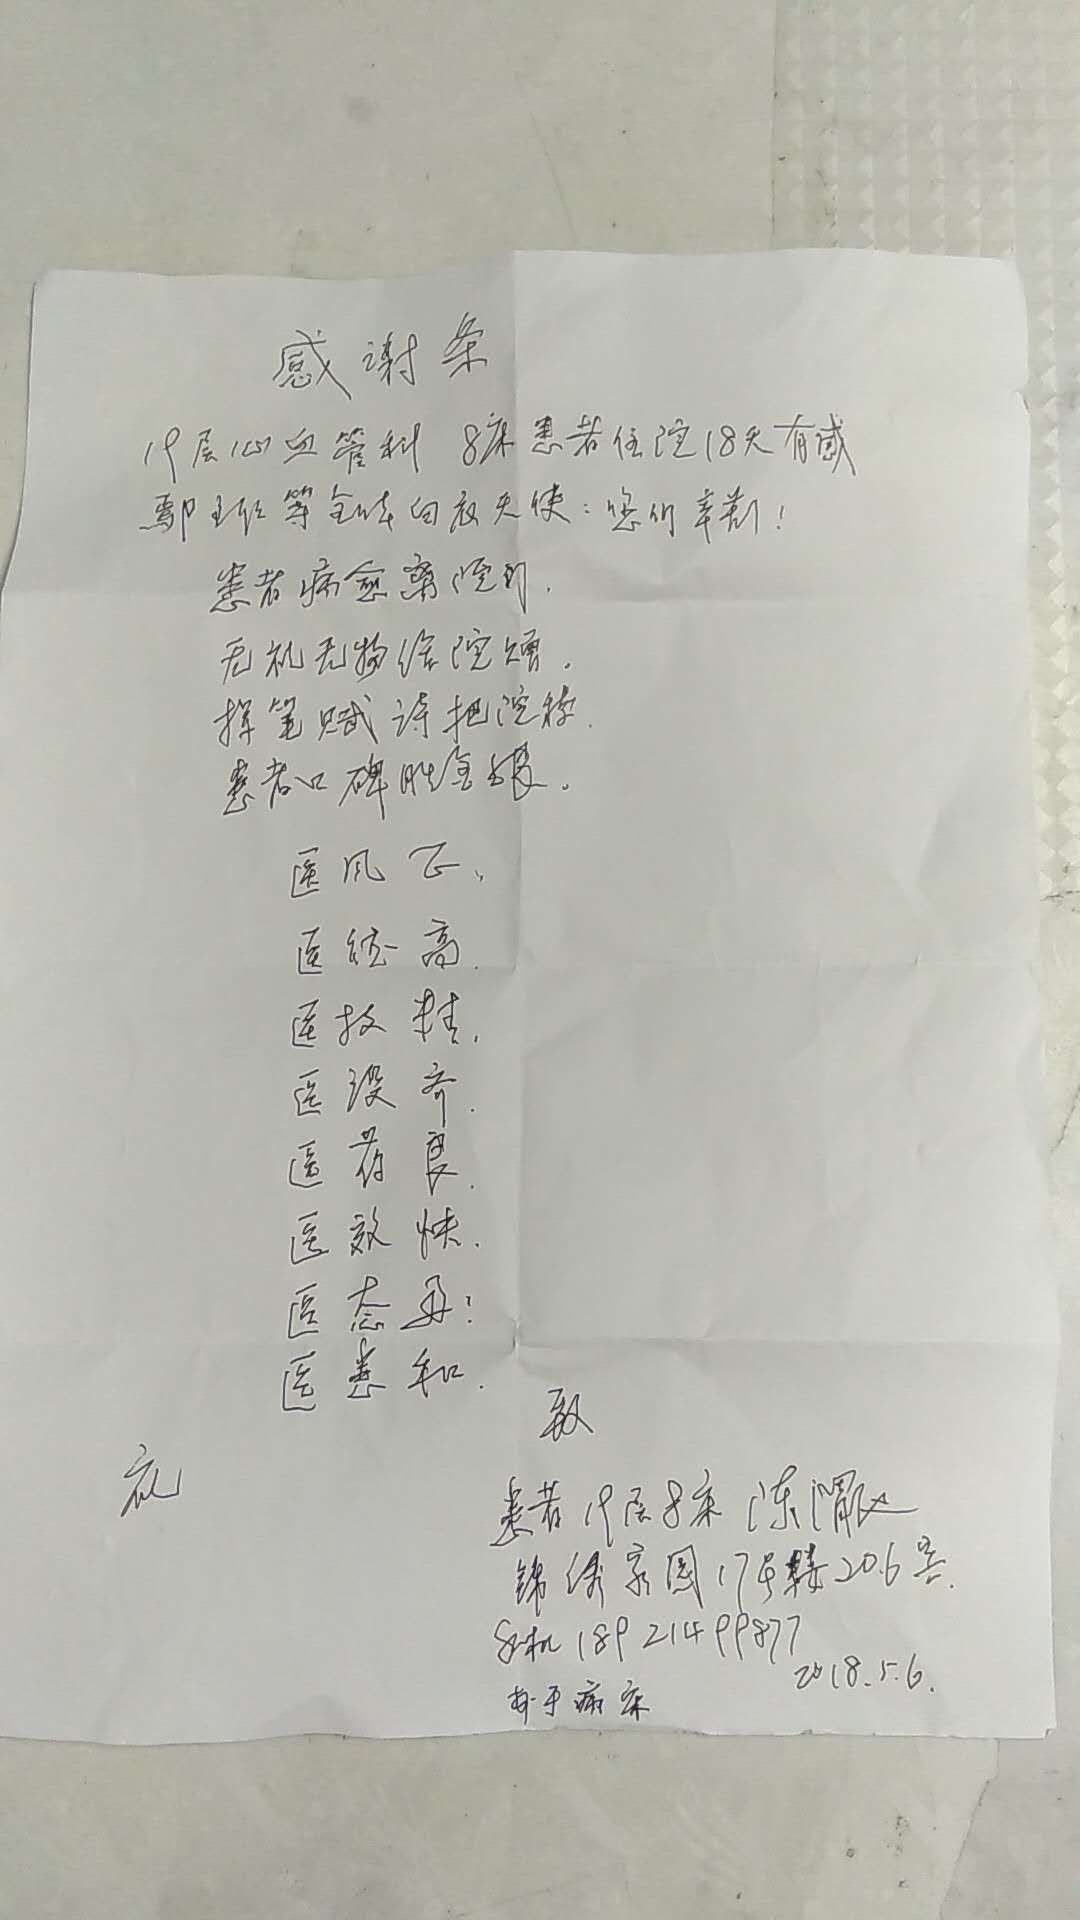 感谢条
19层心血管科 8床患者住院18天有感
鄢主任等全体白衣天使:您们辛勤!
患者病愈离院别.
无礼无物给院赠.
挥笔赋诗把院称.
患者口碑胜金银.
医风正.
医德高.
医技精.
医设齐.
医药良.
医效快.
医态好!
医患和.
致
礼
患者19层8床 陈
锦绣家园17号楼206室.
手机18921499877
2018.5.6.
于病床